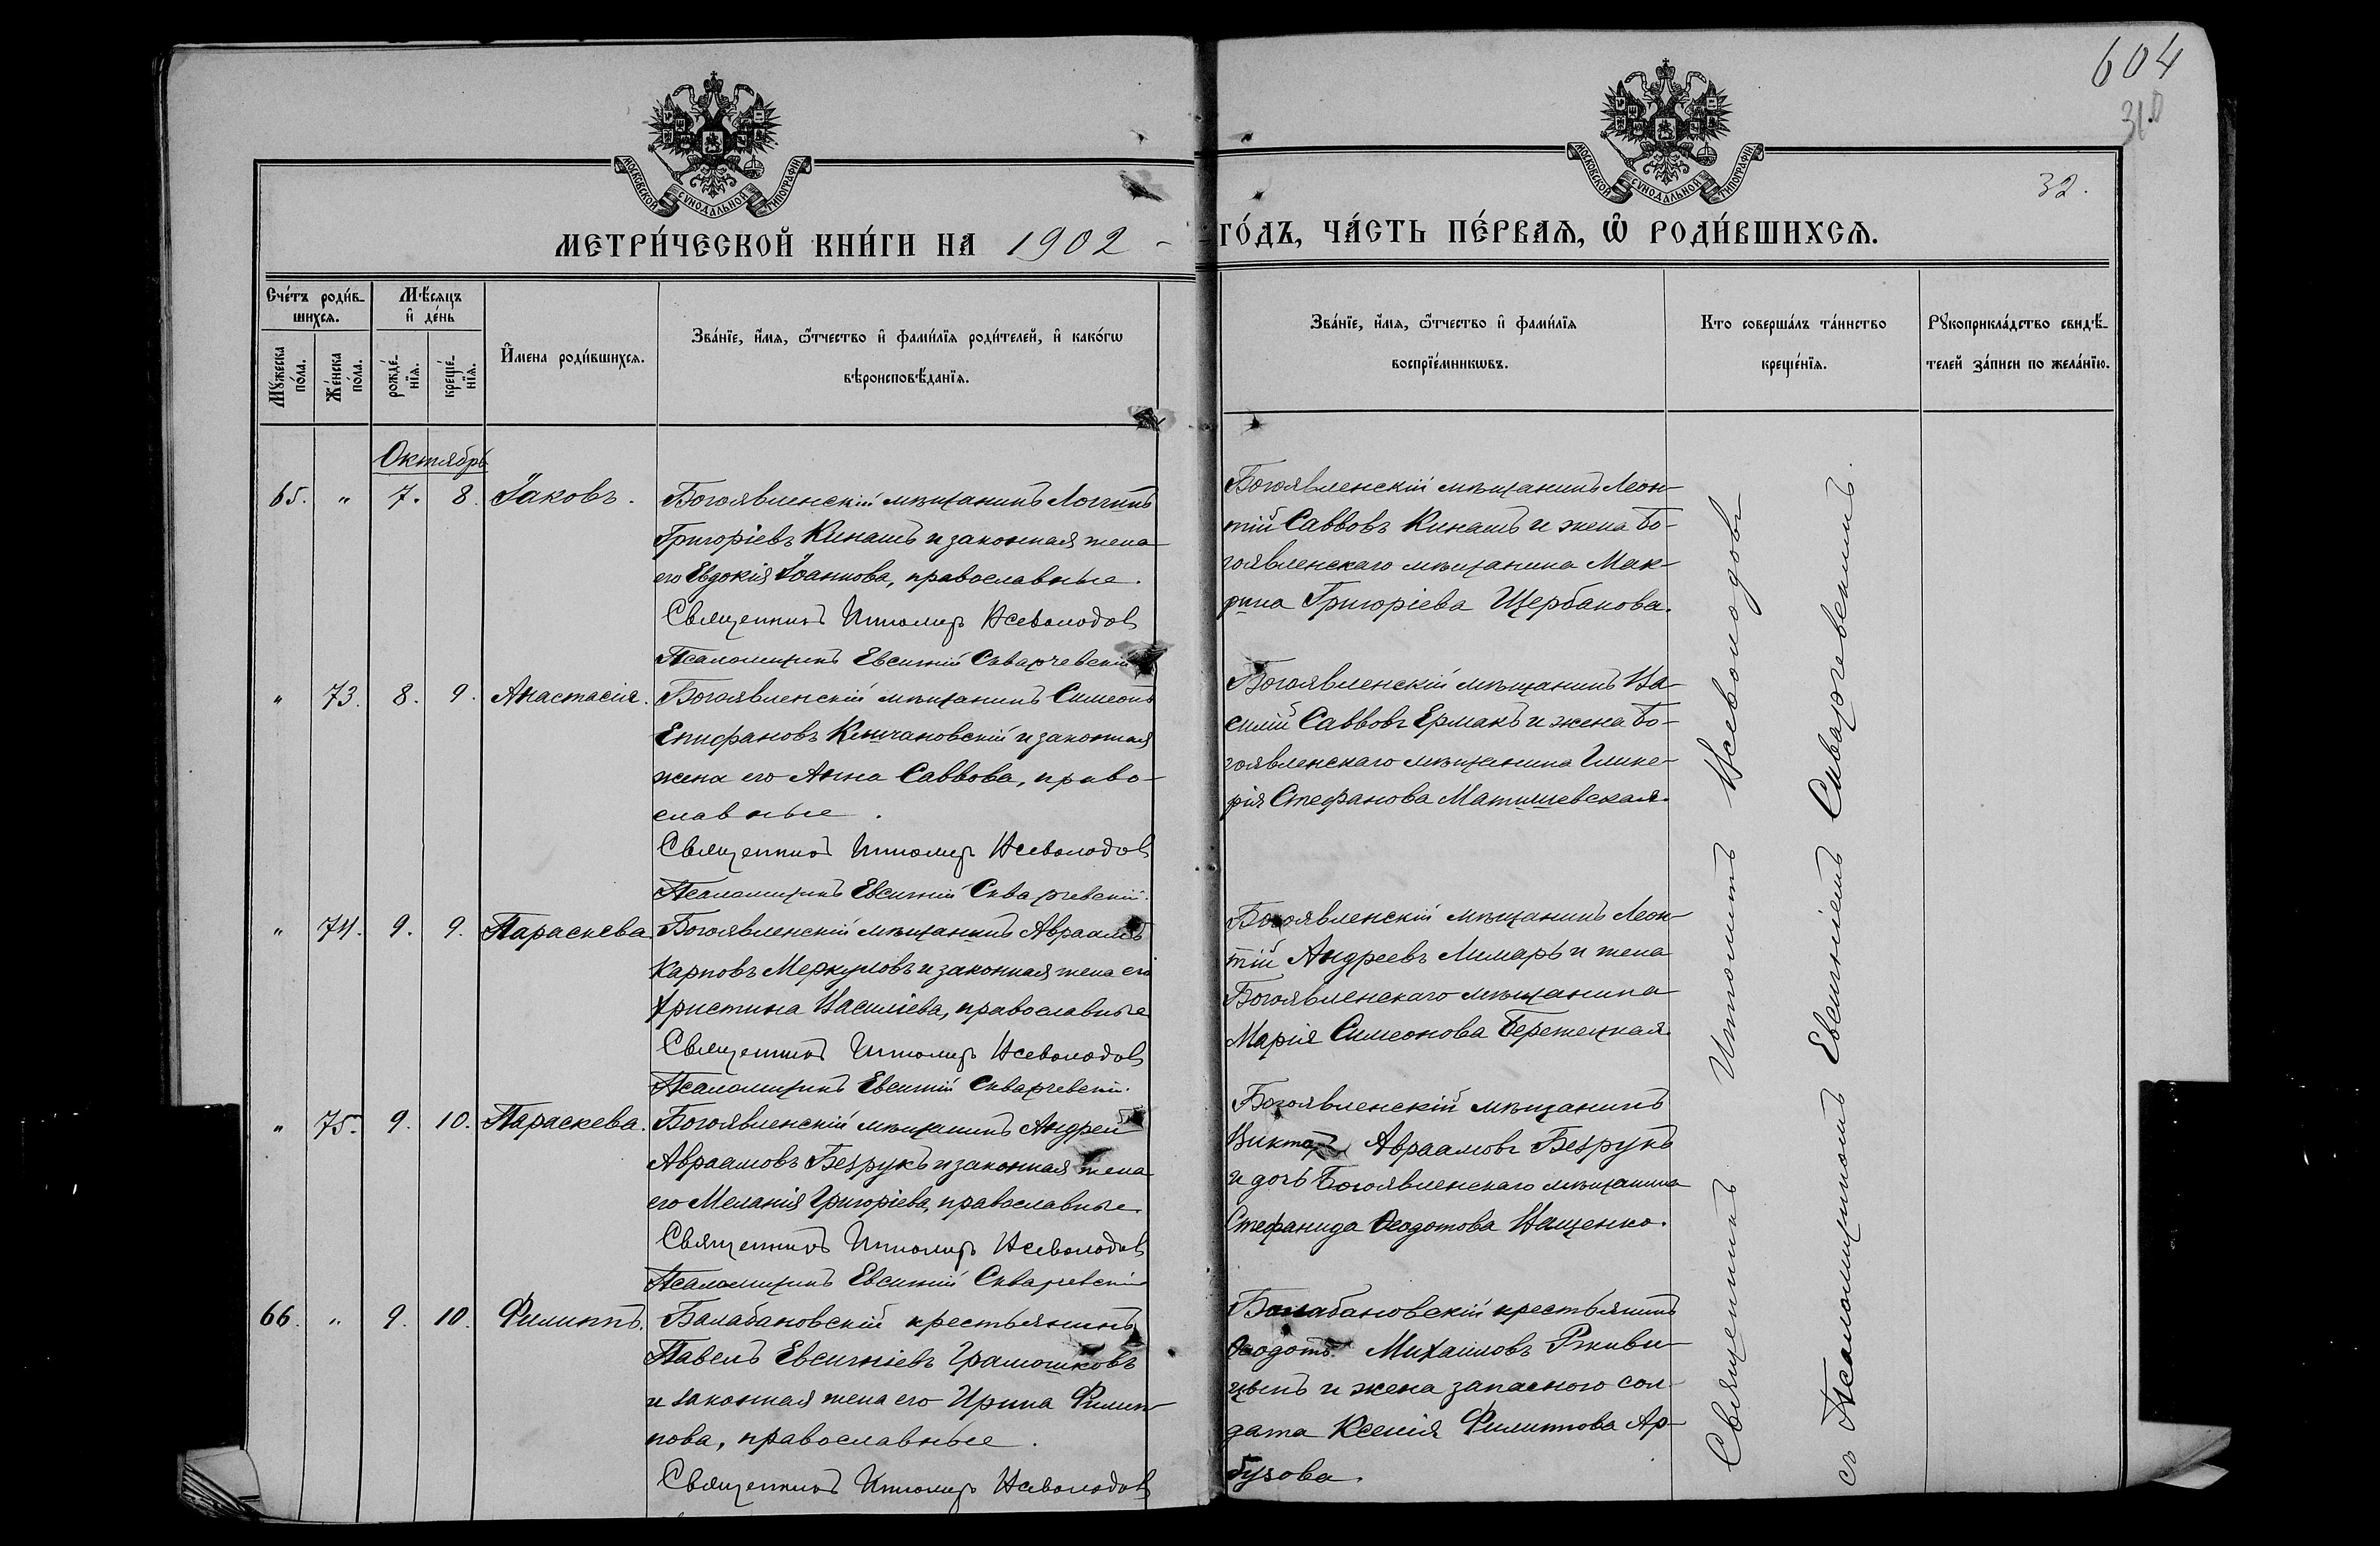 604
31
32.
МОСКОВСКОЙ СѴНОДАЛЬНОЙ ТИПОГРАФІИ
МОСКОВСКОЙ СѴНОДАЛЬНОЙ ТИПОГРАФІИ
МЕТРИ́ЧЕСКОЙ КНИ́ГИ НА 1902
ГО́ДЪ, ЧА́СТЬ ПЕ́РВАѦ, Ѡ҆ РОДИ́ВШИХСѦ.
Сче́тъ роди́в-
шихсѧ.
Мѣ́сѧцъ
и҆ де́нь
Мꙋ́жеска по́ла.
Же́нска по́ла.
рожде́-нїѧ.
креще́-нїѧ.
И҆мена роди́вшихсѧ.
Зва́нїе, и҆́мѧ, ѻ҆́тчество и҆ фами́лїѧ роди́телей, и҆ како́гѡ
вѣроисповѣ́данїѧ.
Зва́нїе, и҆́мѧ, ѻ҆́тчество и҆ фами́лїѧ
воспрїе́мникѡвъ.
Кто соверша́лъ та́инство
креще́нїѧ.
Рꙋкоприкла́дство свидѣ́-
телей за́писи по жела́нїю.
Октябрь
65. " 7. 8. Іаковъ. Богоявленскій мѣщанинъ Логгинъ
Григоріевъ Кинашъ и законная жена
его Евдокія Іоаннова, православные.
Священникъ Всеволодовъ
Псаломщикъ Евсигній Скварчевскій
Богоявленскій мѣщанинъ Леон-
тій Саввовъ Кинашъ и жена Бо-
гоявленскаго мѣщанина Мак-
рина Григоріева Щербакова.
" 73. 8. 9. Анастасія. Богоявленскій мѣщанинъ Симеонъ
Епифановъ и законная
жена его Анна Саввова, право-
славные.
Священникъ Всеволодовъ
Псаломщикъ Евсигній Скварчевскій.
Богоявленскій мѣщанинъ Ва-
силій Саввовъ Ермакъ и жена Бо-
гоявленскаго мѣщанина Глике-
рія Стефанова Матишевская.
" 74. 9. 9. Параскева. Богоявленскій мѣщанинъ Авраамъ
Карповъ Меркуловъ и законная жена его
Христина Василіева, православные
Священникъ Всеволодовъ
Псаломщикъ Евсигній Скварчевскій.
Богоявленскій мѣщанинъ Леон-
тій Андреевъ Лимарь и жена
Богоявленскаго мѣщанина
Марія Симеонова Бережецкая.
" 75. 9. 10. Параскева. Богоявленскій мѣщанинъ Андрей
Авраамовъ Безрукъ и законная жена
его Меланія Григоріева, православные.
Священникъ Всеволодовъ
Псаломщикъ Евсигній Скварчевскій
Богоявленскій мѣщанинъ
Викторъ Авраамовъ Безрукъ
и дочь Богоявленскаго мѣщанина
Стефанида Ѳеодотова Ващенко.
66. " 9. 10. Филиппъ. Балабановскій крестьянинъ
Павелъ Евсигніевъ Грамошковъ
и законная жена его Ирина Филип-
пова, православные.
Священникъ Всеволодовъ
Балабановскій крестьянинъ
Ѳеодотъ Михаиловъ
и жена запаснаго сол-
дата Ксенія Филиппова Ар-
бузова.
Священникъ Всеволодовъ
съ Псаломщикомъ Евсигніемъ Скварчевскимъ.